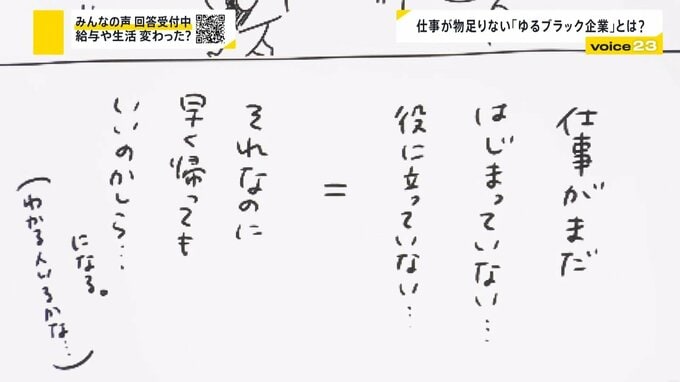 みんなの声 回答受付中
給与や生活 変わった?
仕事が物足りない「ゆるブラック企業」とは?
voice23
仕事がまだ
はじまっていない…
役に立っていない…
=
それなのに
早く帰っても
いいのかしら…
になる。
(わかる人いるかな…)